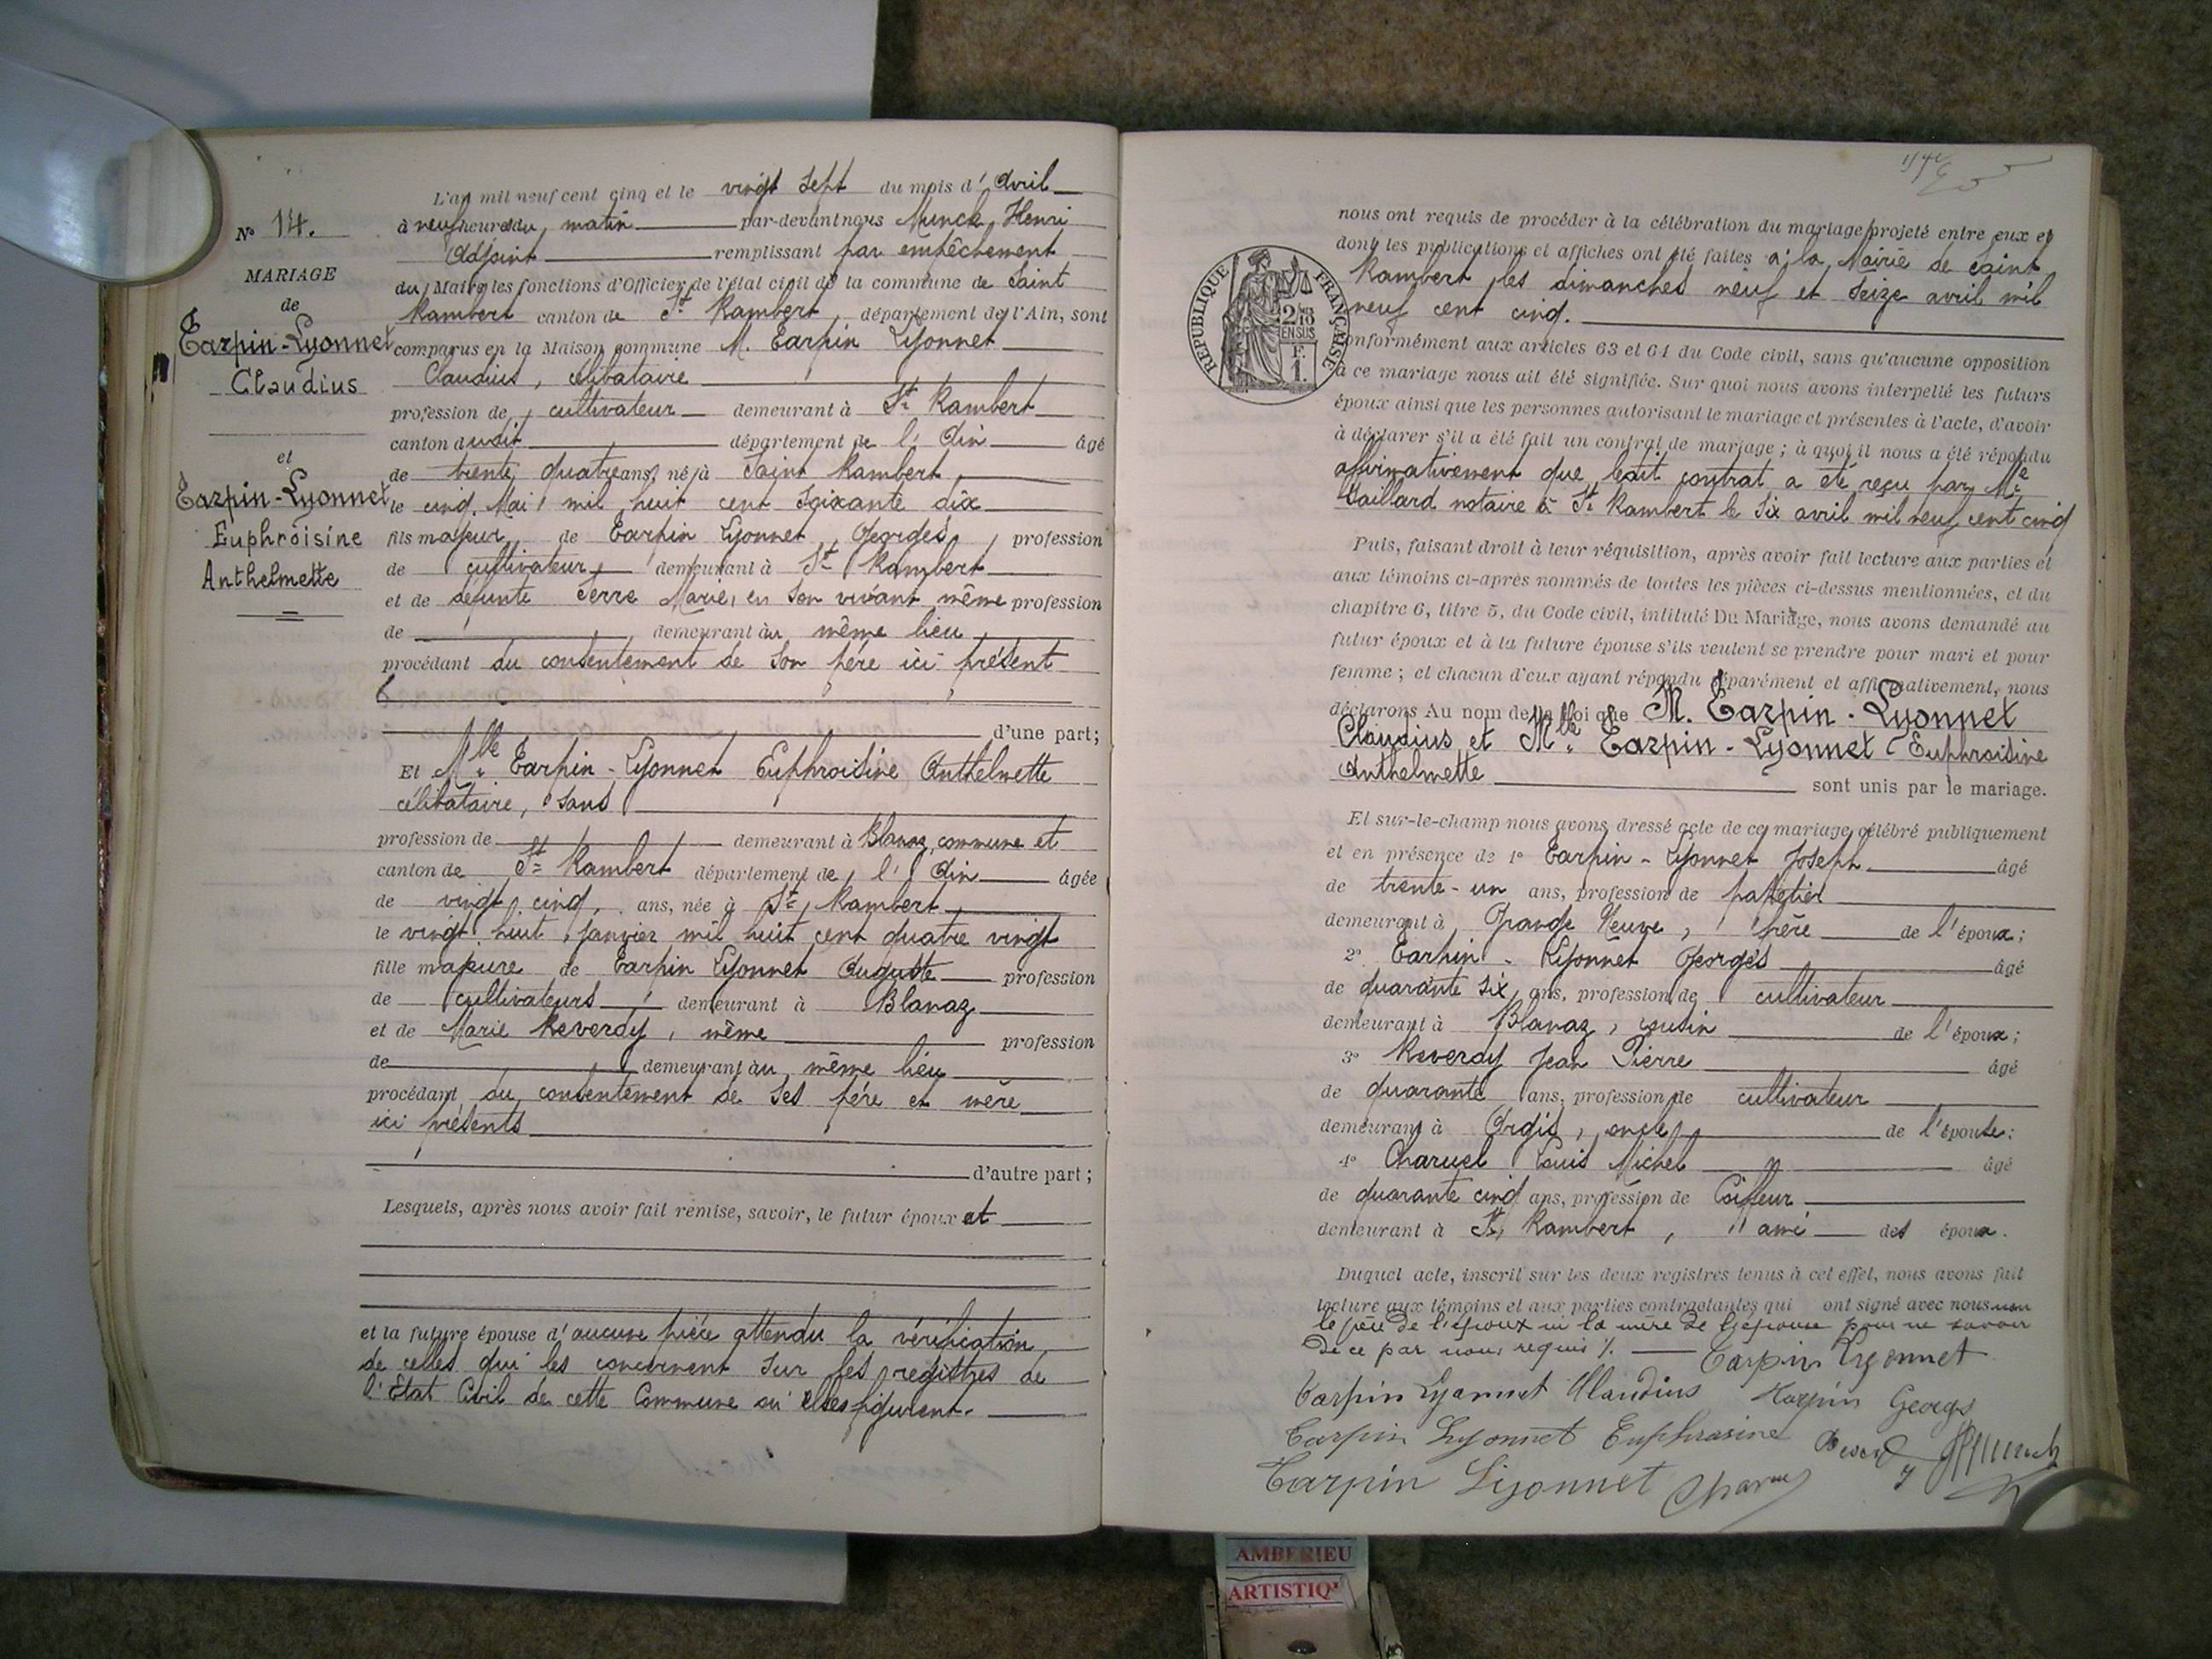 N° 14.
MARIAGE
de
Tarpin-Lyonnet
Claudius
et
Tarpin-Lyonnet
Euphroisine
Anthelmette
L'an mil neuf cent cinq et le vingt sept du mois d'Avril
à neuf heures du matin par-devant nous Munck Henri
Adjoint remplissant par empêchement
du Maire les fonctions d'Officier de l'état civil de la commune de Saint
Rambert canton de St Rambert, département de l'Ain, sont
comparus en la Maison commune M. Tarpin Lyonnet
Claudius, célibataire
profession de cultivateur demeurant à St Rambert
canton dudit département de l'Ain âgé
de trente quatre ans, né à Saint Rambert,
le cinq Mai mil huit cent soixante dix
fils majeur de Tarpin Lyonnet, Georges, profession
de cultivateur, demeurant à St Rambert
et de défunte Serre Marie, en son vivant même profession
de demeurant au même lieu
procédant du consentement de son père ici présent
d'une part;
Et Mlle Tarpin-Lyonnet Euphroisine Anthelmette
célibataire, sans
profession de demeurant à Blanaz, commune et
canton de St Rambert département de l'Ain âgée
de vingt cinq, ans, née à St Rambert,
le vingt huit, janvier mil huit cent quatre vingt
fille majeure de Tarpin Lyonnet Auguste profession
de cultivateurs demeurant à Blanaz
et de Marie Reverdy, même profession
de demeurant au même lieu
procédant du consentement de ses père et mère
ici présents
d'autre part;
Lesquels, après nous avoir fait remise, savoir, le futur époux et
et la future épouse d'aucune pièce attendu la vérification
de celles qui les concernent sur les registres de
l'Etat Civil de cette Commune où elles figurent.
nous ont requis de procéder à la célébration du mariage projeté entre eux et
dont les publications et affiches ont été faites à la Mairie de Saint
Rambert les dimanches neuf et seize avril mil
neuf cent cinq.
REPUBLIQUE FRANÇAISE
2/10 EN SUS
F.
1.
conformément aux articles 63 et 64 du Code civil, sans qu'aucune opposition
à ce mariage nous ait été signifiée. Sur quoi nous avons interpellé les futurs
époux ainsi que les personnes autorisant le mariage et présentes à l'acte, d'avoir
à déclarer s'il a été fait un contrat de mariage; à quoi il nous a été répondu
affirmativement que ledit contrat a été reçu par Me
Gaillard notaire à St Rambert le six avril mil neuf cent cinq
Puis, faisant droit à leur réquisition, après avoir fait lecture aux parties et
aux témoins ci-après nommés de toutes les pièces ci-dessus mentionnées, et du
chapitre 6, titre 5, du Code civil, intitulé Du Mariage, nous avons demandé au
futur époux et à la future épouse s'ils veulent se prendre pour mari et pour
femme; et chacun d'eux ayant répondu séparément et affirmativement, nous
déclarons Au nom de la loi que M. Tarpin-Lyonnet
Claudius et Mlle Tarpin-Lyonnet Euphroisine
Anthelmette sont unis par le mariage.
Et sur-le-champ nous avons dressé acte de ce mariage célébré publiquement
et en présence de 1° Tarpin-Lyonnet Joseph âgé
de trente-un ans, profession de papetier
demeurant à Grange Neuve, frère de l'époux;
2° Tarpin-Lyonnet Georges âgé
de quarante six ans, profession de cultivateur
demeurant à Blanaz, cousin de l'époux;
3° Reverdy Jean Pierre âgé
de quarante ans, profession de cultivateur
demeurant à Ordis, oncle de l'épouse;
4° Charuel Louis Michel âgé
de quarante cinq ans, profession de Coiffeur
demeurant à St Rambert, ami des époux.
Duquel acte, inscrit sur les deux registres tenus à cet effet, nous avons fait
lecture aux témoins et aux parties contractantes qui ont signé avec nous non
le père de l'époux ni la mère de l'épouse pour ne savoir
de ce par nous requis %. Tarpin Lyonnet
Tarpin Lyonnet Claudius Tarpin Georges
Tarpin Lyonnet Euphrosine
Tarpin Lyonnet Charuel
AMBERIEU
ARTISTIQ'